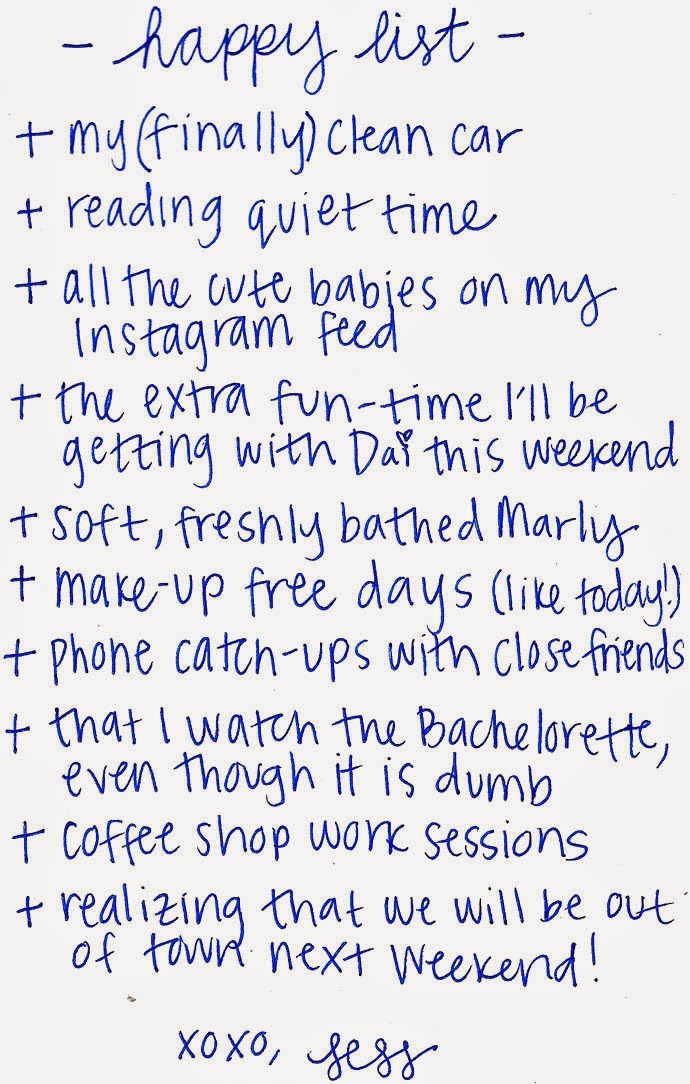 - happy list -
+ my (finally) clean car
+ reading quiet time
+ all the cute babies on my
Instagram feed
+ the extra fun-time I'll be
getting with Dai this weekend
+ soft, freshly bathed Marly
+ make-up free days (like today!)
+ phone catch-ups with close friends
+ that I watch the Bachelorette,
even though it is dumb
+ coffee shop work sessions
+ realizing that we will be out
of town next weekend!
xoxo, Jess